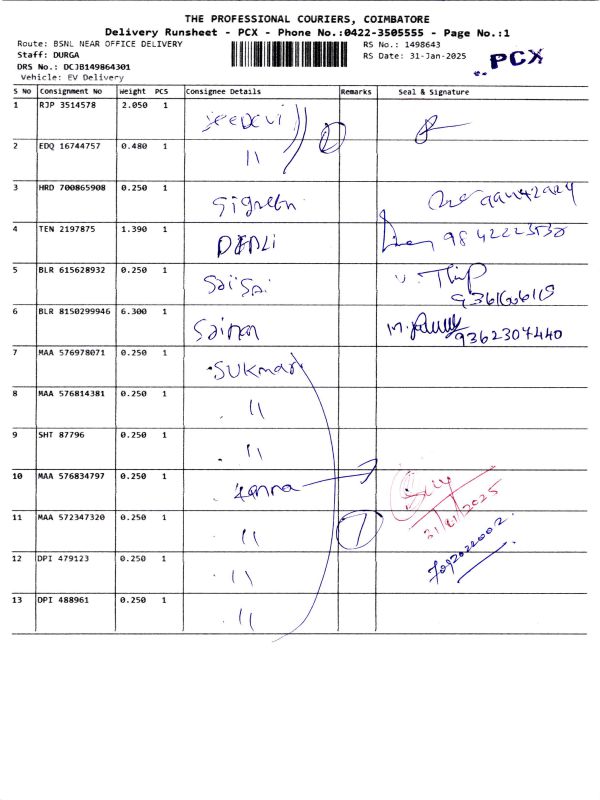 THE PROFESSIONAL COURIERS, COIMBATORE
Delivery Runsheet - PCX - Phone No.:0422-3505555 - Page No.:1
Route: BSNL NEAR OFFICE DELIVERY
RS No.: 1498643
Staff: DURGA
RS Date: 31-Jan-2025
PCX
DRS No.: DCJB149864301
Vehicle: EV Delivery
S No Consignment No Weight PCS Consignee Details Remarks Seal & Signature
1 RJP 3514578 2.050 1
2 EDQ 16744757 0.480 1 "
3 HRD 700865908 0.250 1
4 TEN 2197875 1.390 1
5 BLR 615628932 0.250 1 Sai Sai
6 BLR 8150299946 6.300 1 9362307440
7 MAA 576978071 0.250 1
8 MAA 576814381 0.250 1 "
9 SHT 87796 0.250 1 "
10 MAA 576834797 0.250 1 Kanna
31/01/2025
11 MAA 572347320 0.250 1 " 7
12 DPI 479123 0.250 1 "
13 DPI 488961 0.250 1 "